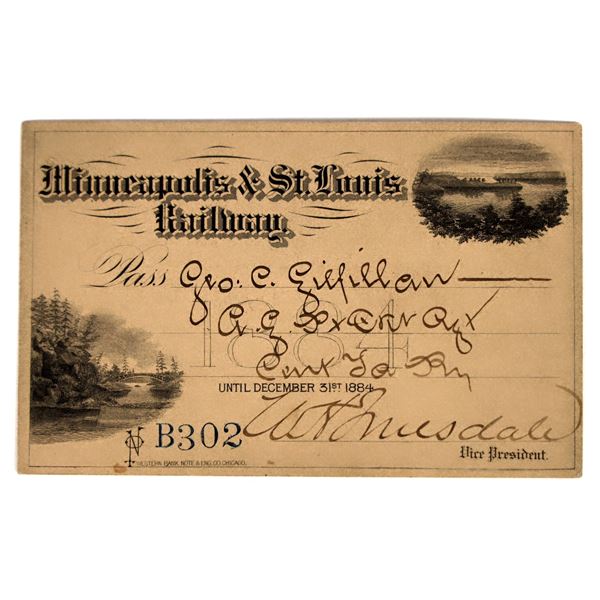 Minneapolis & St. Louis
Railway.
Pass Geo. C. Gilfillan
1884
A. G. Agt
Cent Ia Ry
UNTIL DECEMBER 31ST 1884
B302
W H Truesdale
Vice President.
WESTERN BANK NOTE & ENG. CO. CHICAGO.